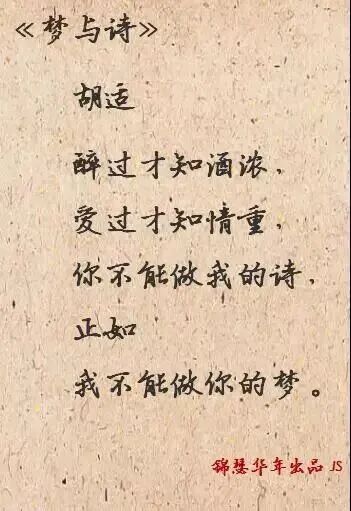 《梦与诗》
胡适
醉过才知酒浓，
爱过才知情重，
你不能做我的诗，
正如
我不能做你的梦。
锦瑟华年出品 JS